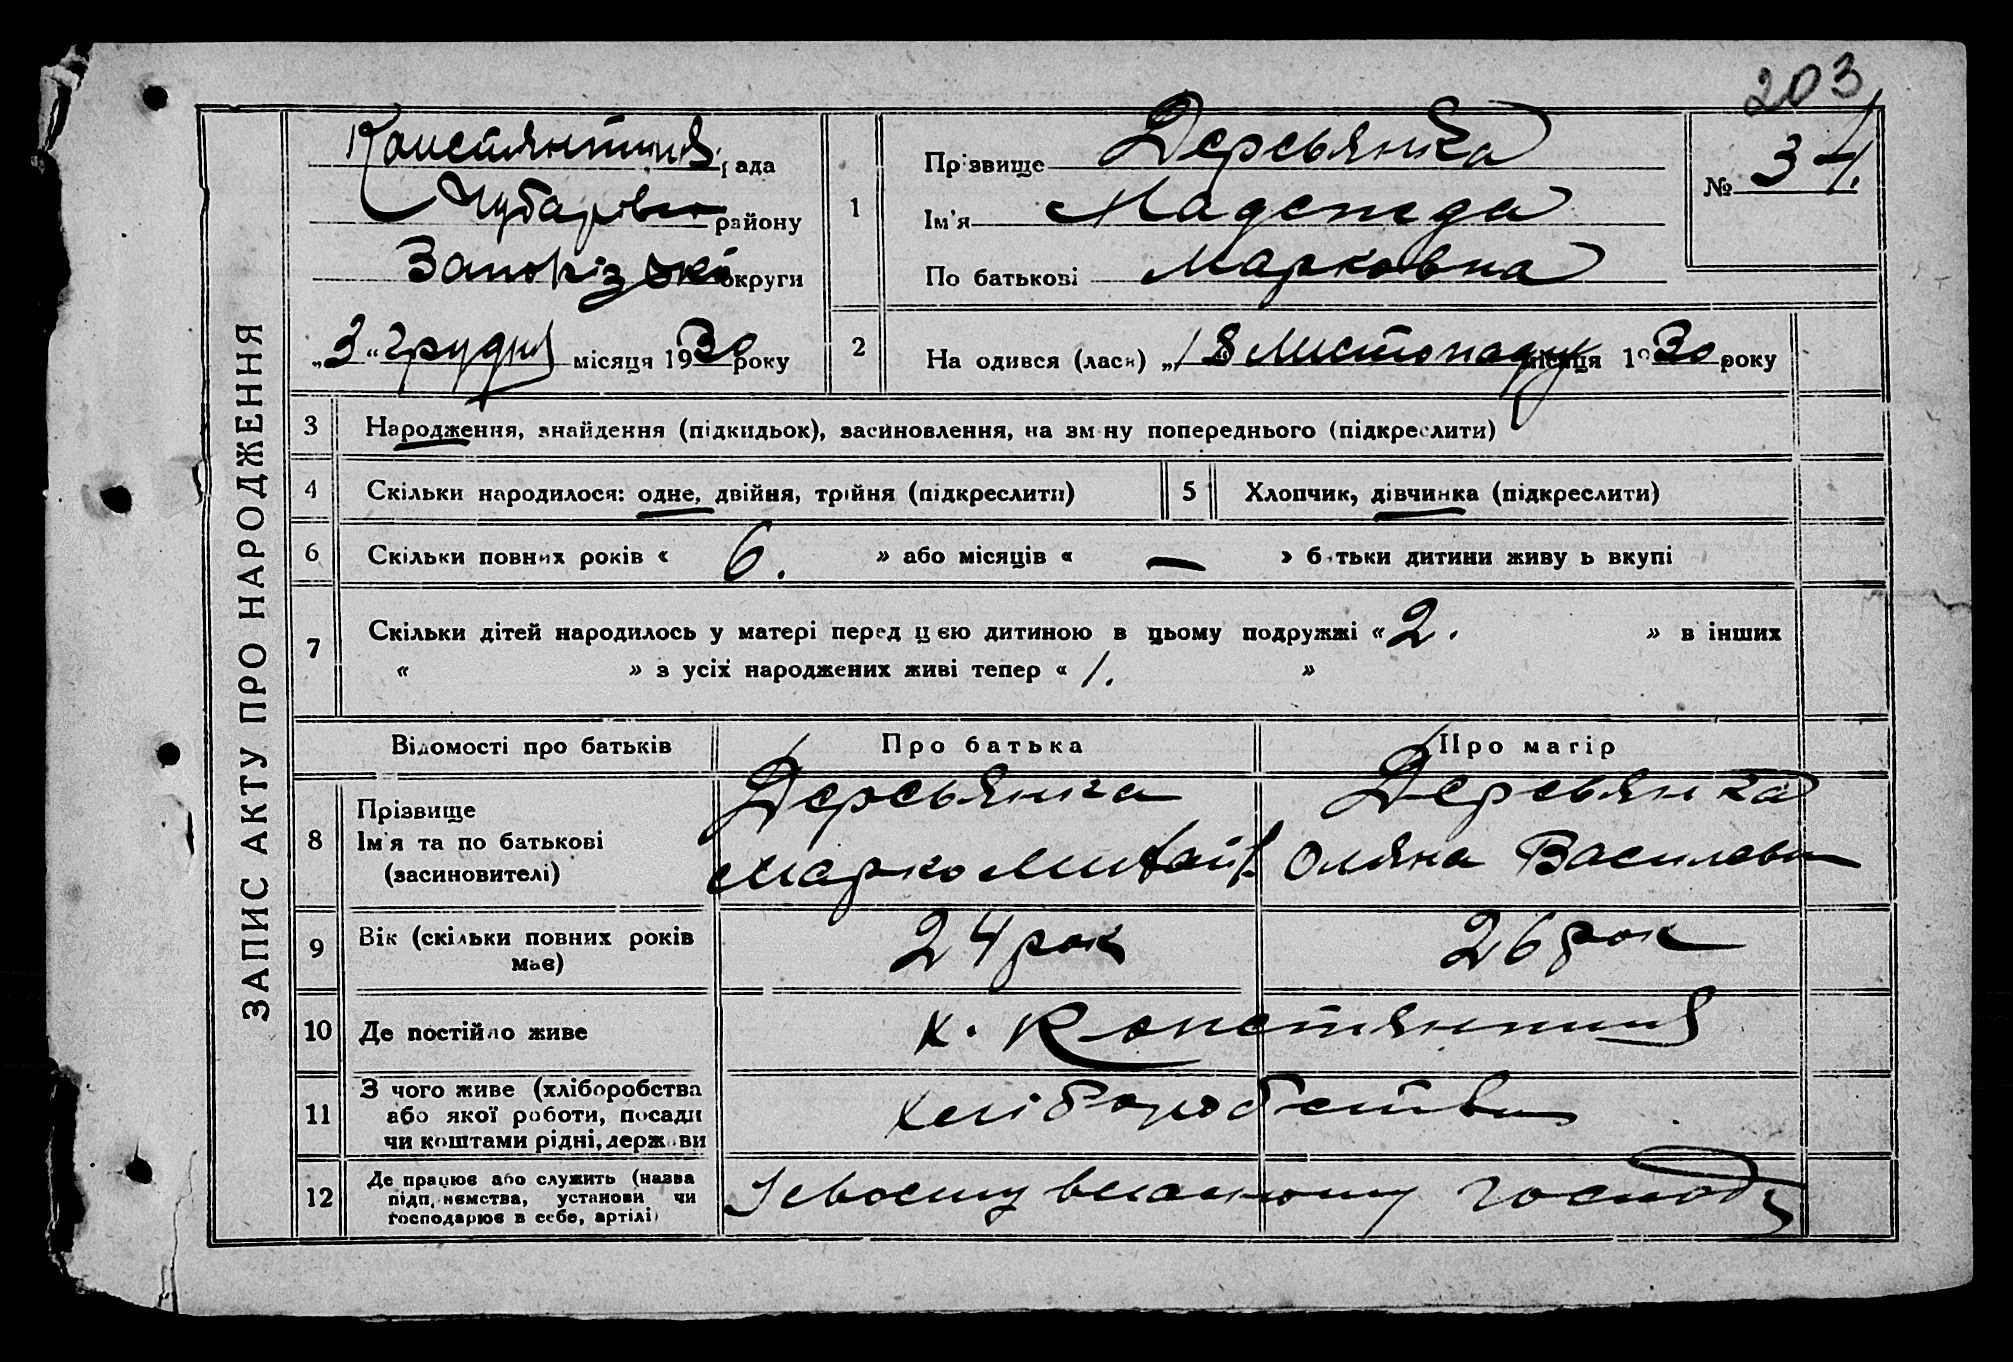 203
ЗАПИС АКТУ ПРО НАРОДЖЕННЯ
Констянтинів рада
Чубарівсько району
Запорізької округи
„3“ грудня місяця 1930 року
1
Прізвище Дерев'янка
Ім'я Надежда
По батькові Марковна
№ 34.
2
На одився (лася) „18 Листопаду місяця 1930 року
3 Народження, знайдення (підкидьок), засиновлення, на зміну попереднього (підкреслити)
4 Скільки народилося: одне, двійня, трійня (підкреслити) 5 Хлопчик, дівчинка (підкреслити)
6 Скільки повних років « 6. » або місяців « — » батьки дитини живуть вкупі
7 Скільки дітей народилось у матері перед цією дитиною в цьому подружжі « 2. » в інших
« » з усіх народжених живі тепер « 1. »
Відомості про батьків Про батька Про матір
8 Прізвище
Ім'я та по батькові
(засиновителі)
Деревьянка
Марко Михайл.
Деревьянка
Оляна Василевн
9 Вік (скільки повних років має)
24 рок 26 рок
10 Де постійно живе х. Констянтинів
11 З чого живе (хліборобства
або якої роботи, посади
чи коштами рідні, держави
хліборобства
12 Де працює або служить (назва
підп,иємства, установи чи
господарює в себе, артілі)
У своєму власному господ